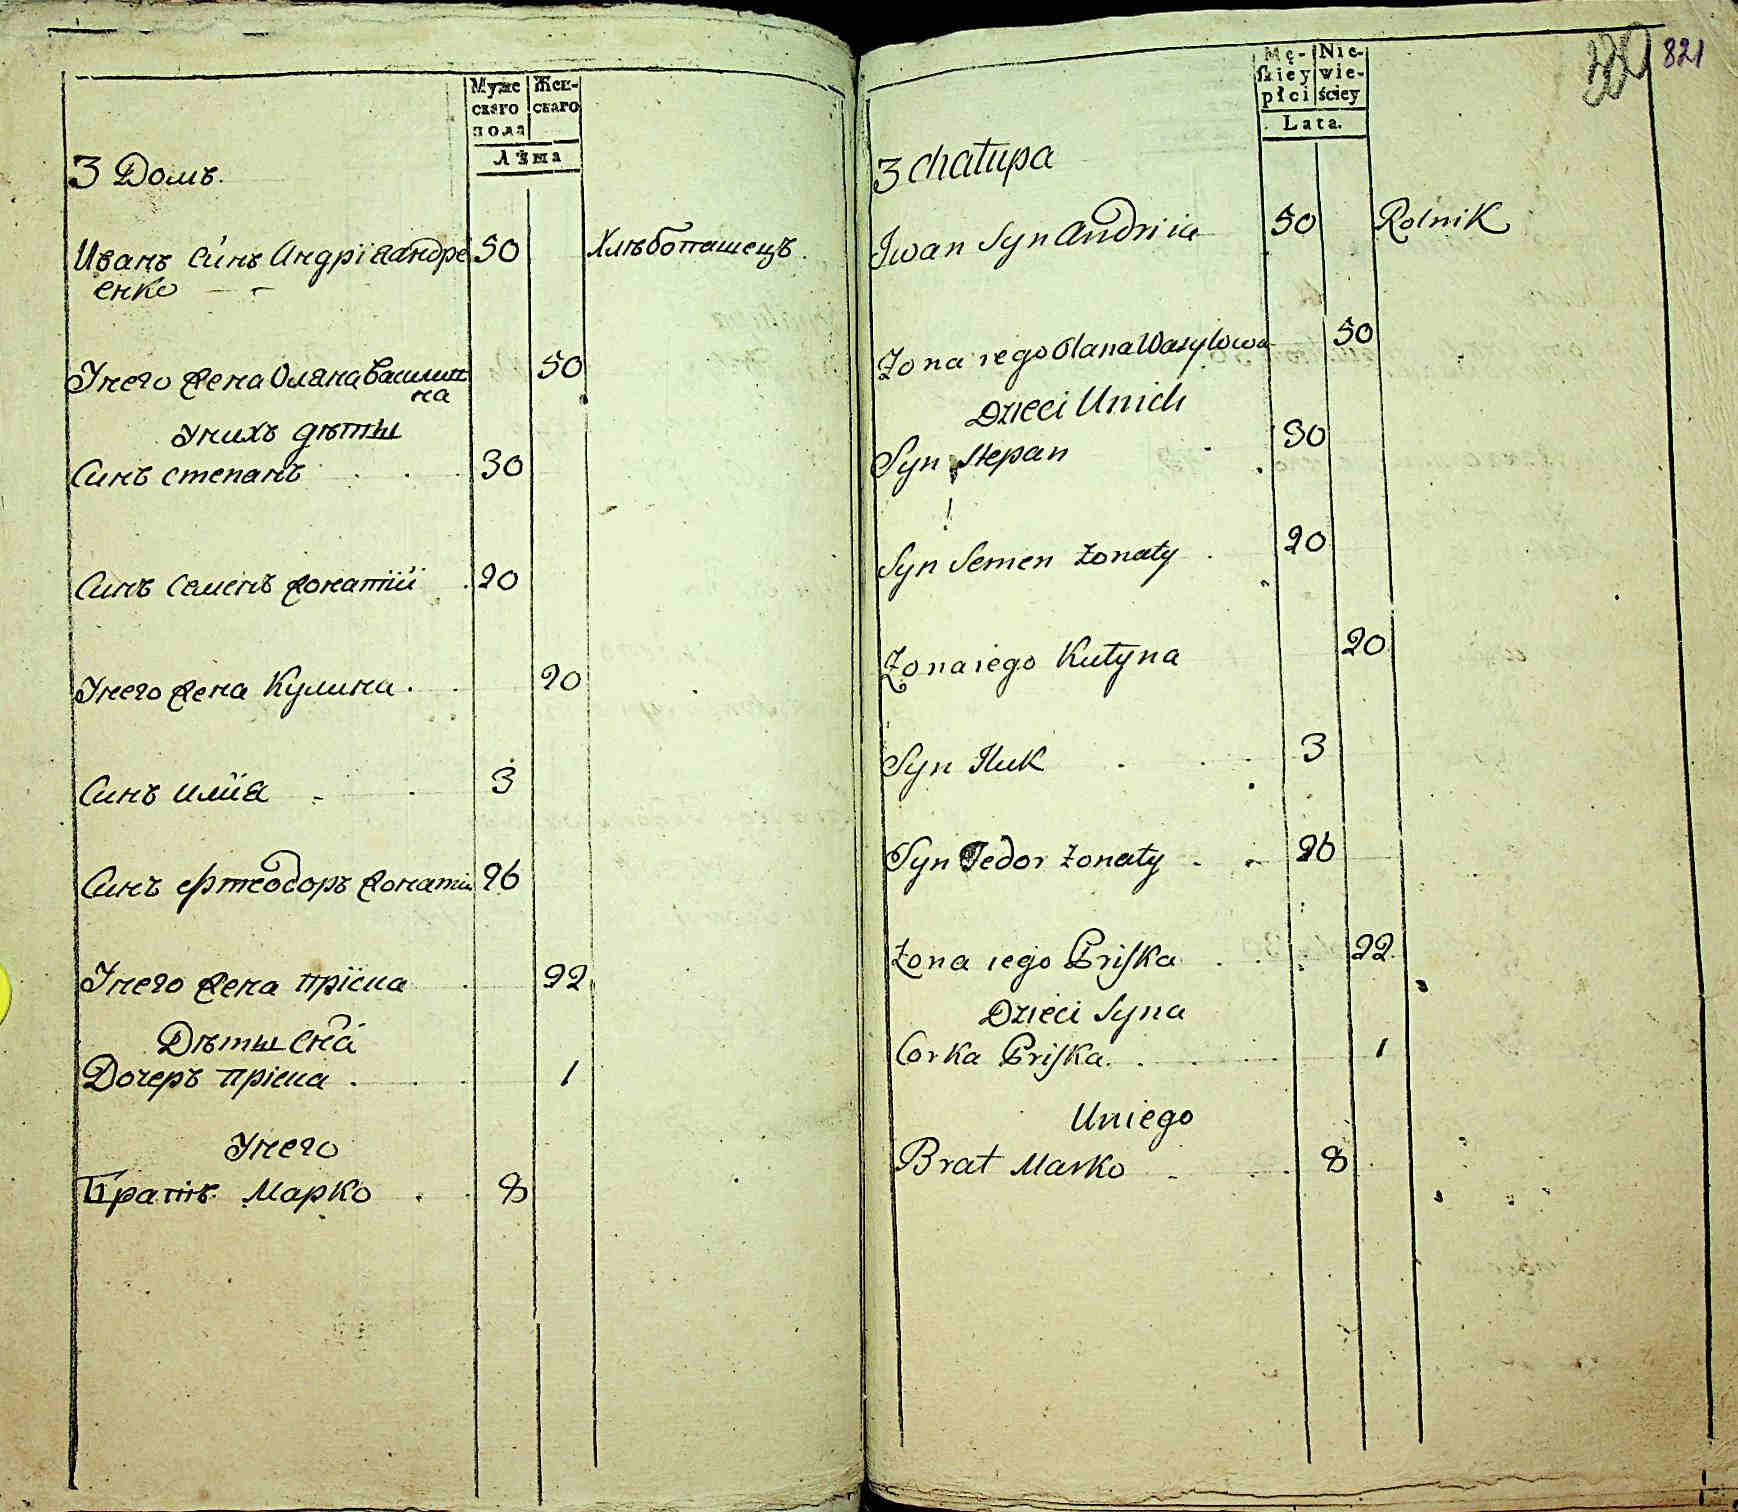 Муже
скаго
пола
Жен-
скаго
Лѣта
3 Домъ.
Иванъ Синъ Андрія Андре 50 Хлѣбопашецъ.
енко
Унего Жена Оляна Василит 50
на
Унихъ дѣтты
Синъ степанъ 30
Синъ Семенъ Жонатій 20
Унего Жена Кулина 20
Синъ илия 3
Синъ фтеодоръ Жонатіи 26
Унего Жена Пріска 22
Дѣты сна
Дочеръ Пріска 1
Унего
Братъ Марко 8
821
Mę-
skiey
płci
Nie-
wie-
ściey
Lata.
3 Chałupa
Jwan Syn Andriia 50 Rolnik
Żona iego Olana Wasylowa 50
Dzieci Unich
Syn Stepan 30
Syn Semen Żonaty 20
Żona iego Kułyna 20
Syn Iluk 3
Syn Fedor Żonaty 26
Żona iego Priska 22
Dzieci Syna
Corka Priska 1
Uniego
Brat Marko 8